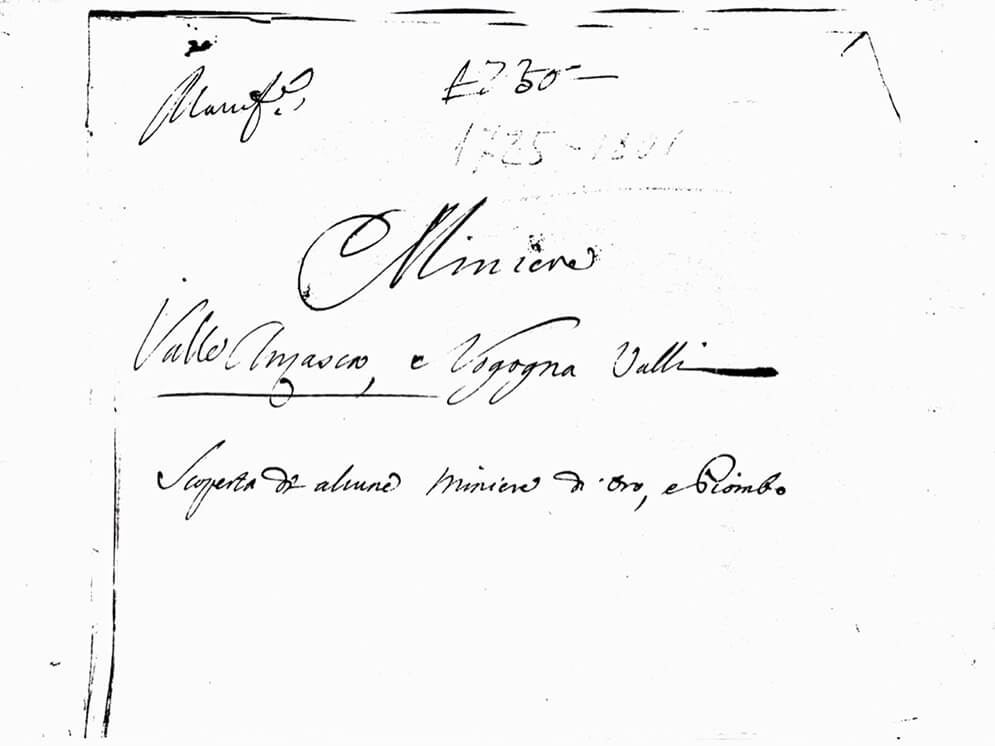 1730
1725-1801
Miniere
Valle Anzasca, e Vogogna Valli
Scoperta di alcune Miniere di oro, e Piombo